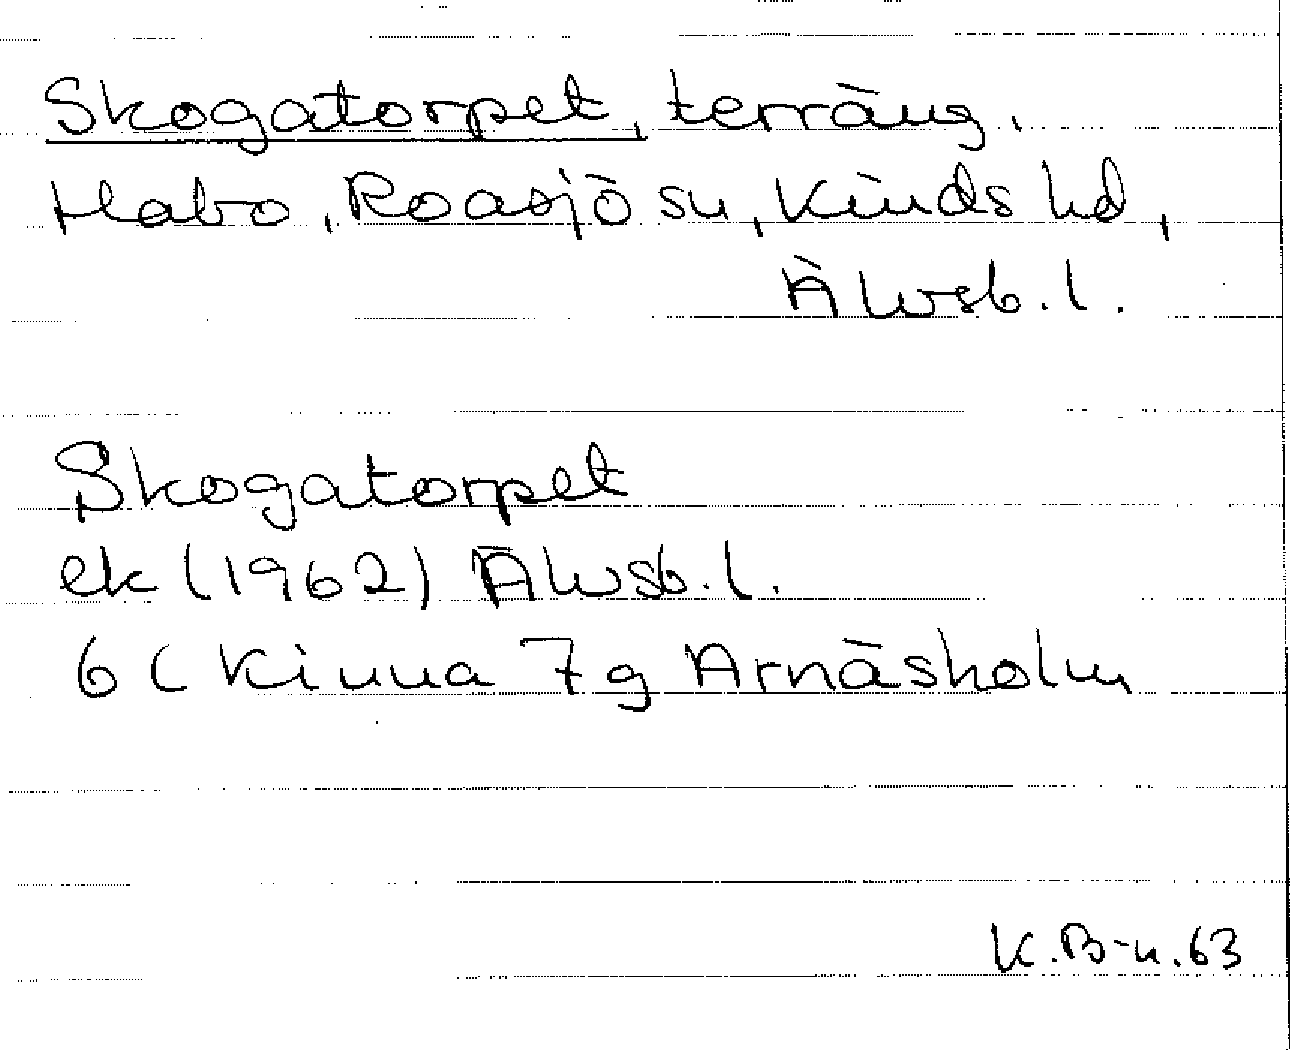 Skogatorpet, terräng.
Habo, Roasjö sn, Kinds hd,
Älvsb. l.
Skogatorpet
ek (1962) Älvsb. l.
6 C Kinna 7 g Arnäsholm
K. B-n. 63